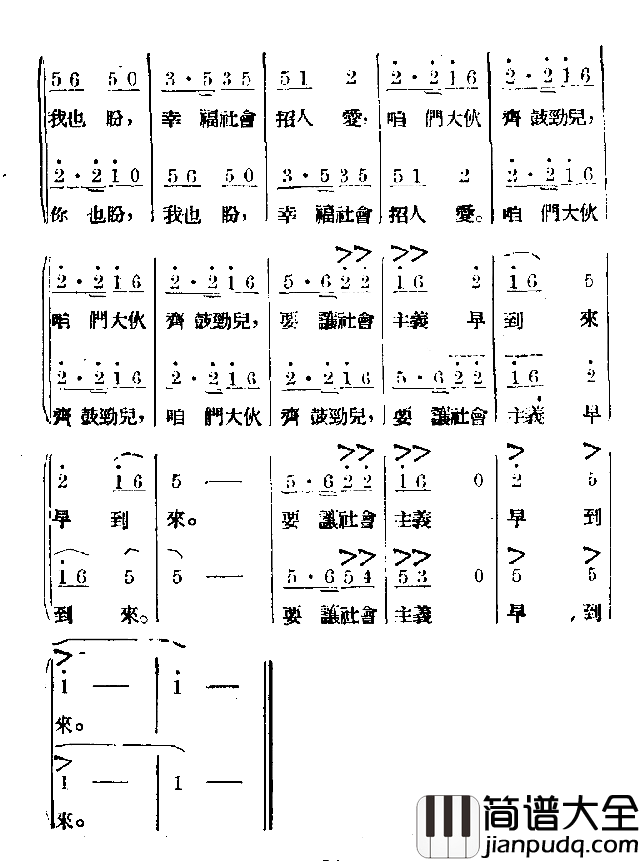 56 50 | 3·535 | 51 2 | 2·216 | 2·216
我也盼， 幸 福社會 招人 愛， 咱 們大伙 齊鼓勁兒，
2·210 | 56 50 | 3·535 | 51 2 | 2·216
你 也盼， 我也 盼， 幸 福社會 招人 愛。 咱 們大伙
2·216 | 2·216 | 5·622 | 16 2 | 16 5
咱 們大伙 齊鼓勁兒， 要 讓社會 主義 早 到 來
2·216 | 2·216 | 2·216 | 5·622 | 16 2
齊鼓勁兒， 咱 們大伙 齊鼓勁兒， 要 讓社會 主義 早
2 16 | 5 — | 5·622 | 16 0 | 2 5
早 到 來。 要 讓社會 主義 早 到
16 5 | 5 — | 5·654 | 53 0 | 5 5
到 來。 要 讓社會 主義 早 到
1 — | 1 —
來。
1 — | 1 —
來。
简谱大全
jianpudq.com